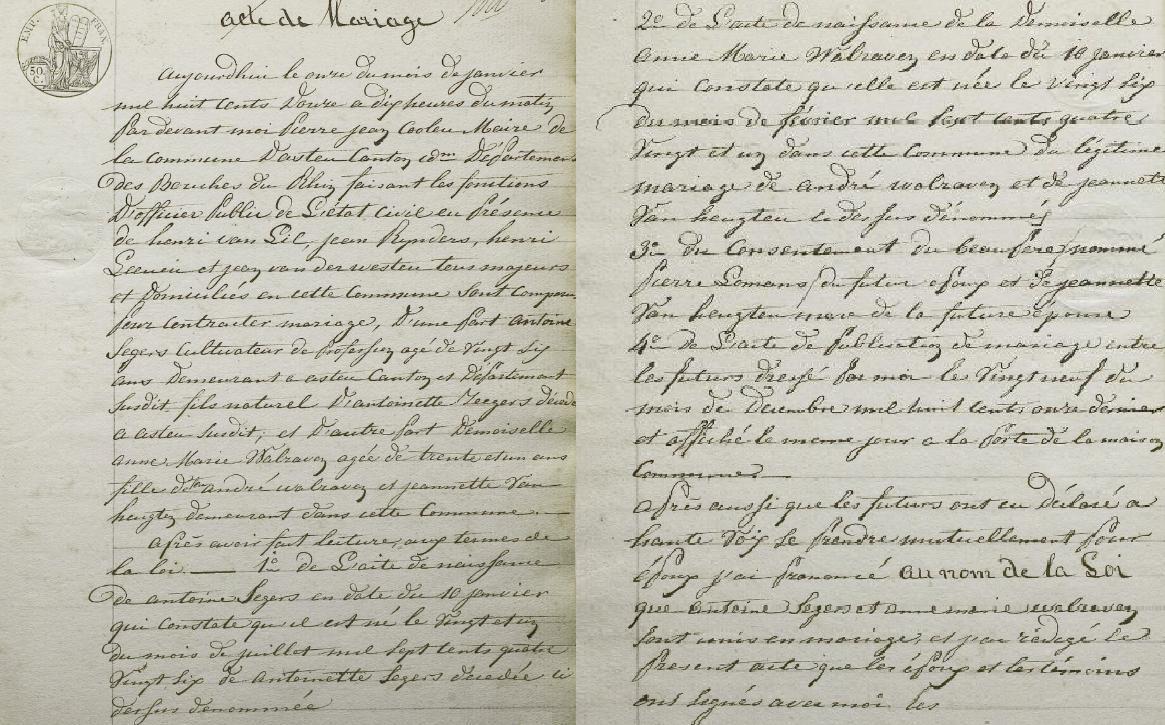 acte de Mariage
EMP. FRAN.
50 C.
aujourdhui le onze du mois de janvier
mil huit cents Douze a dix heures du matin
Par devant moi Pierre jean Coolen Maire de
la Commune D'asten Canton et Département
des Bouches du Rhin faisant les fonctions
D'officier Public de L'état civil en présence
de henri van Lil, jean Rynders, henri
Leenen et jean van der westen tous majeurs
et Domiciliés en cette Commune Sont comparu
pour Contracter mariage, D'une part antoine
Segers Cultivateur de profession agé de vingt six
ans Demeurant a asten Canton et Département
Susdit fils naturel D'antoinette Seegers décedé
a asten Susdit; et D'autre part Demoiselle
anne Marie Walraven agée de trente et un ans
fille de andré walraven et jeannette Van
heugten demeurant dans cette Commune.
après avoir fait lecture, aux termes de
la loi 1° de L'acte de naissance
de antoine Segers en date du 10 janvier
qui Constate qu'il est né le Vingt et un
du mois de juillet mil sept cents quatre
Vingt Six de Antoinette Segers décedée ci
dessus denommée
2° de L'acte de naissance de la Demoiselle
anne Marie Walraven en date du 10 janvier
qui Constate qu'elle est née le vingt Six
du mois de février mil sept cents quatre
Vingt et un dans cette Commune du légitime
mariage de andré walraven et de jeannette
Van heugten ci dessus dénommés
3° du Consentement du beaupere nommé
pierre Lomans du futur epoux et de jeannette
Van heugten mere de la future épouse
4° de L'acte de Publication de mariage entre
les futurs dressé par moi le Vingt neuf du
mois de Decembre mil huit cents onze dernier
et affiché le meme jour a la porte de la maison
Commune.
après aussi que les futurs ont eu déclaré a
haute Voix Se prendre mutuellement pour
époux j'ai prononcé au nom de la Loi
que antoine Segers et anne marie walraven
Sont unis en mariage, et j'ai rédigé le
present acte que les époux et les témoins
ont signés avec moi les